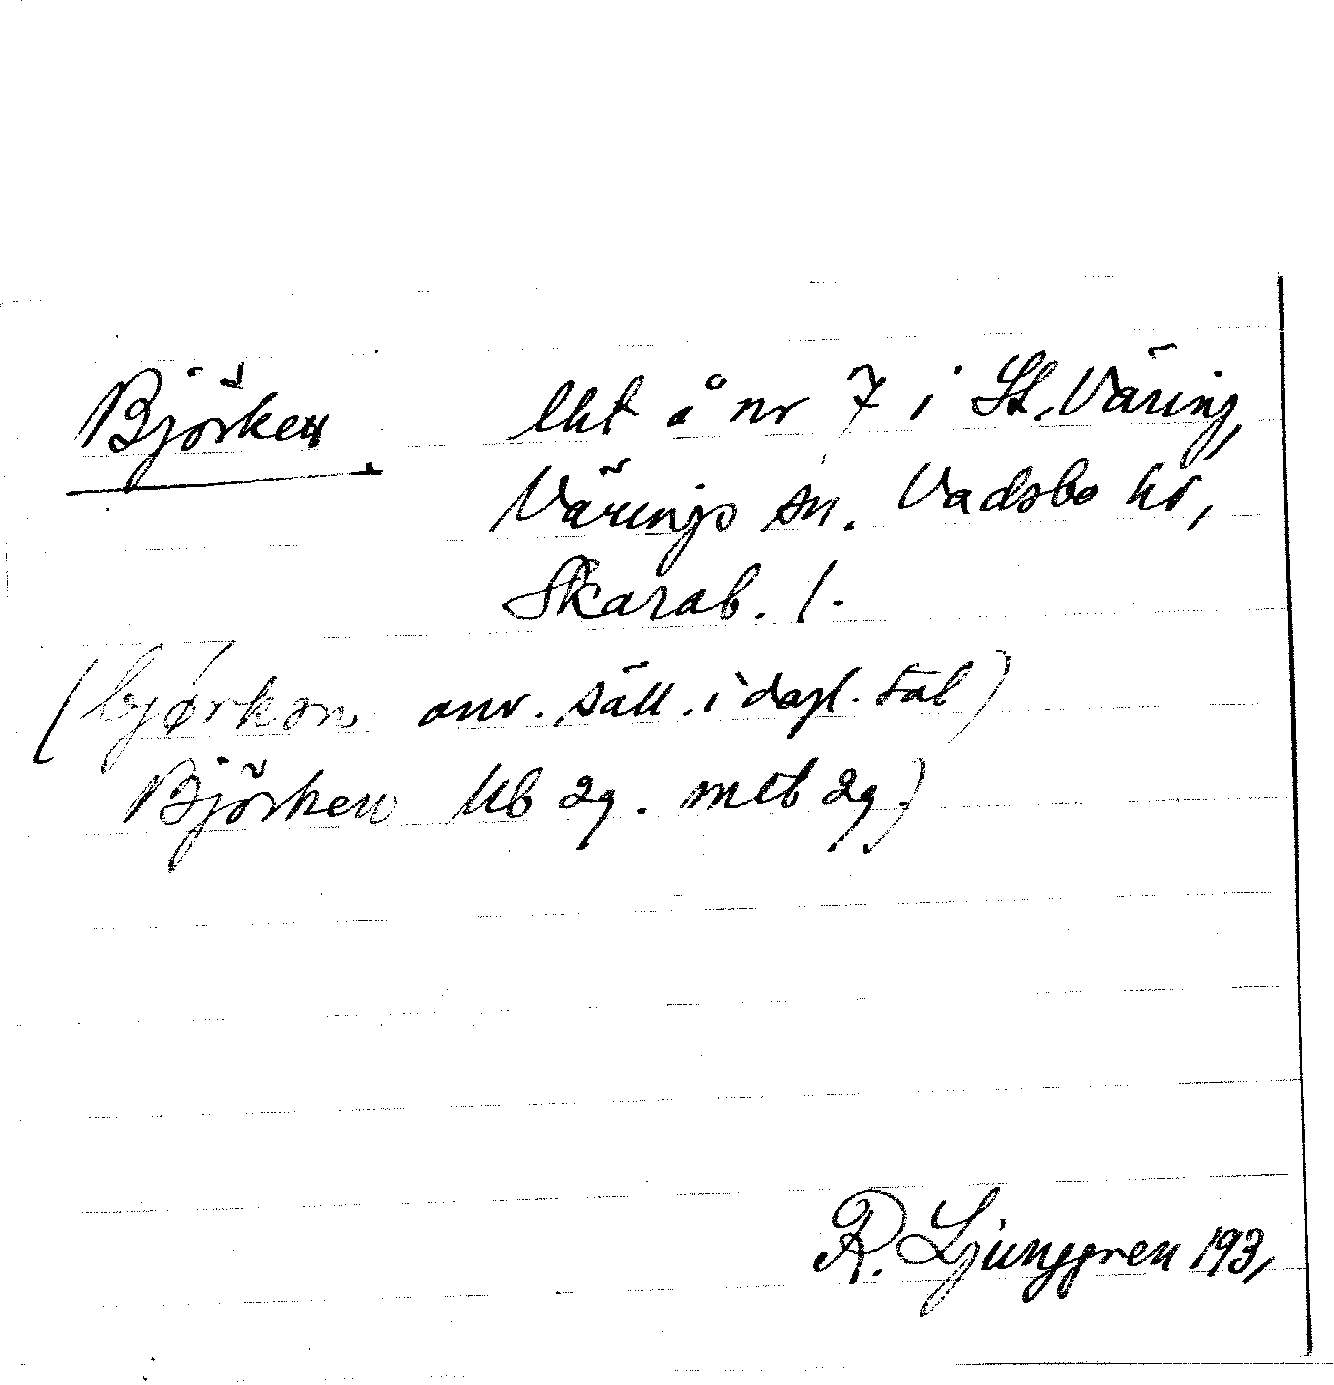 Björken lht å nr 7 i St. Väring,
Värings sn. Vadsbo hd,
Skarab. l.
(bjørkən anv. säll. i dagl. tal)
Björken Ub 29. mtb 29.)
R. Ljunggren 193,